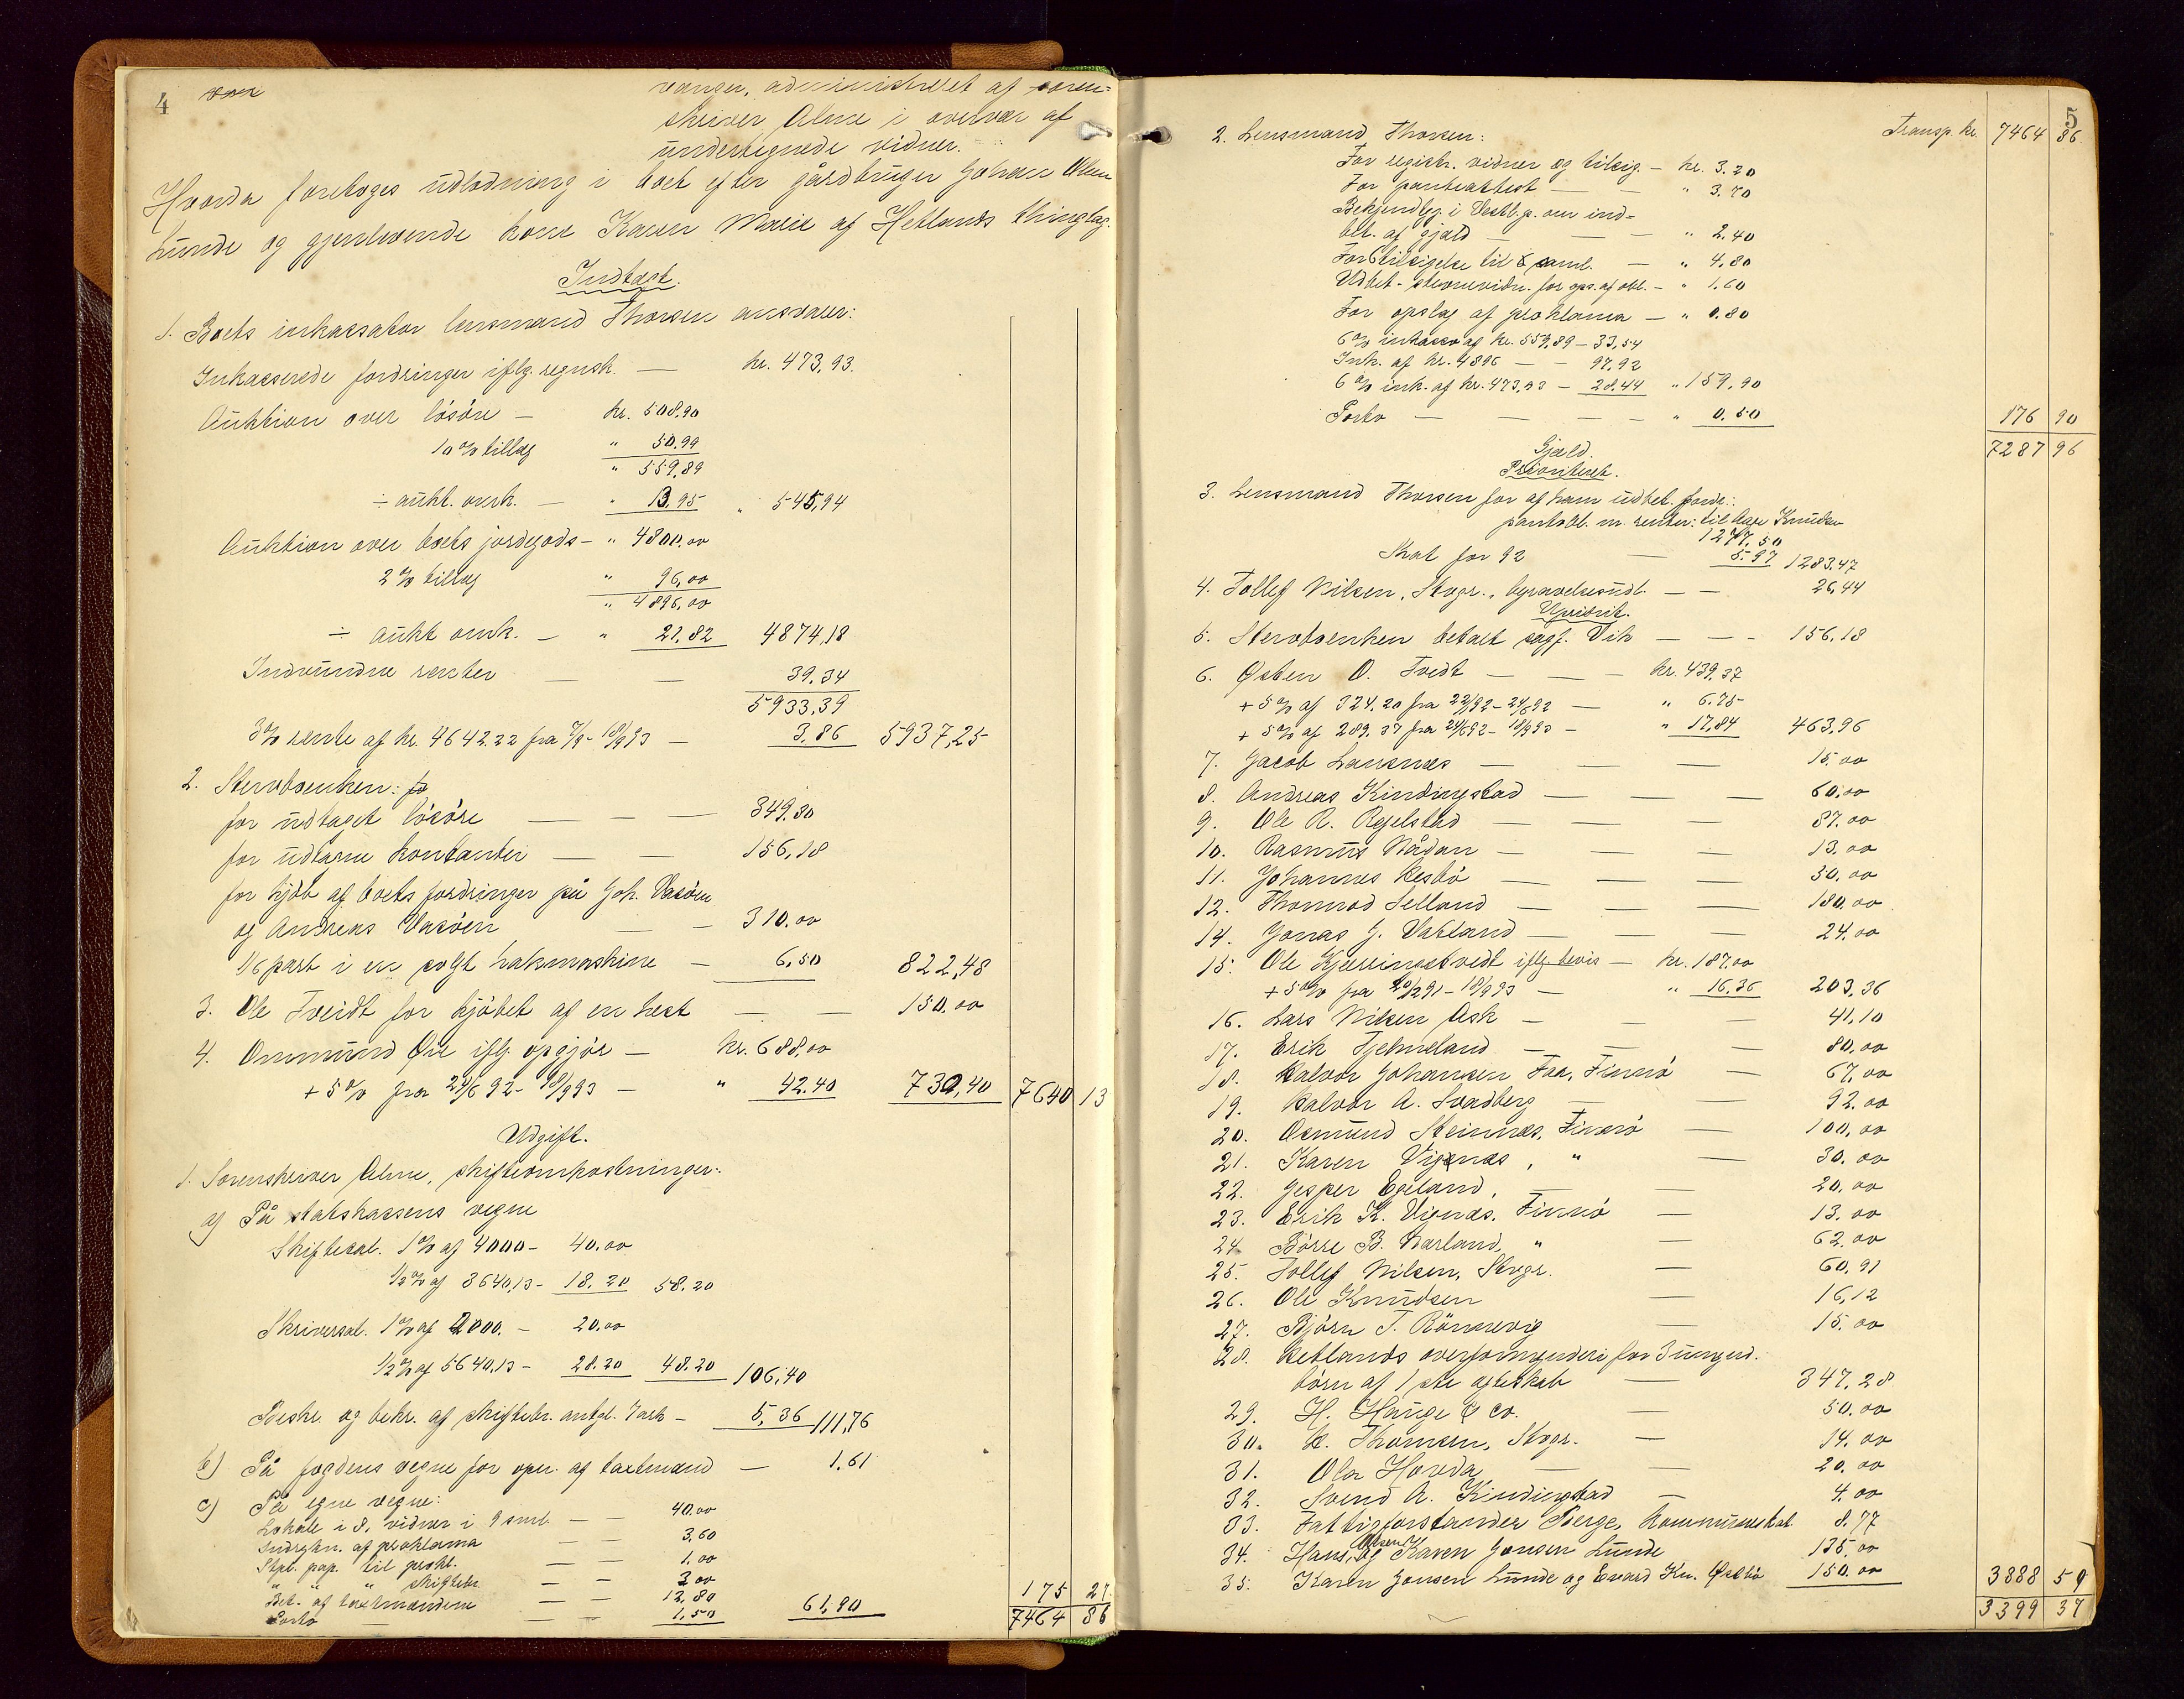 4
vanger, administreret af soren-
skriver Alme i overvær af
undertegnede vidner.
Hvorda foretoges udlodning i boet efter gårdbruger Johan Olsen
Lunde og gjenlevende kone Karen Marie af Hetlands thinglag.
Indtægt.
1. Boets inkassator lensmand Thorsen ansvarer:
Inkasserede fordringer iflg. regnsk. — kr. 473,93.
Auktion over løsøre — kr. 508,90
10 % tillæg " 50,99
" 559,89
÷ aukt. omk. — " 13,95 " 545,94
Auktion over boets jordegods — " 4800,00
2 % tillæg " 96,00
" 4896,00
÷ aukt omk. — " 21,82 4874,18
Indvundne renter — — 39,34
5933,39
3 % rente af kr. 4642,22 fra 7/9 - 18/9 93 — 3,86 5937,25
2. Stervboenken:
for udtaget løsøre — — — 349,80
for udtagne kontanter — — 156,18
for kjøb af boets fordringer på Joh. Vasøen
og Andreas Vasøen — — 310,00
1/6 part i en solgt hakmaskine — 6,50 822,48
3. Ole Tveidt for kjøbet af en hest — — 150,00
4. Ommund Øie iflg. opgjør — kr. 688,00
+ 5 % fra 24/6 92 - 18/9 93 — " 42.40 730,40 7640 13
Udgift.
1. Sorenskriver Alme, skifteomkostninger:
a) På statskassens vegne
Skiftesal. 1 % af 4000 — 40,00
1/2 % af 3640,13 — 18,20 58.20
Skriversal. 1 % af 2000. — 20,00
1/2 % af 5640,13 — 28.20 48.20 106,40
Beskr. og bekr. af skiftebr. antgl. 7 ark — 5,36 111,76
b) På fogdens vegne for opn. af taxtmænd — 1,61
c) På egne vegne:
Lokale i 8, vidner i 9 saml. — — 40,00
Indrykn. af proklama — — 3,60
Stpl. pap. til prokl. — — 1,00
" " " skiftebr. — — 3,00
Bet. af taxtmændene — — 12,80
Porto — — 1,50 61,90
175 27
7464 86
5
Transp. kr. 7464 86
2. Lensmand Thorsen:
For registr. vidner og tilsig. — kr. 3,20
For panteattest — — " 3,70
Bekjendtg. i Vestl.p. om ind-
bet. af gjæld — — — " 2,40
For 6 tilsigelse til 8 saml. — " 4,80
Udbet. stevnevidn. for ops. af obl. — " 1,60
For opslag af proklama — " 0.80
6 % inkasso af kr. 559,89 — 33,54
Ink. af kr. 4896 — — 97,92
6 % ink. af kr. 473,93 — 28,44 " 159,90
Porto — — — — " 0,50 176 90
7287 96
Gjæld.
Prioriteret.
3. Lensmand Thorsen for af ham udbet. fordr.:
pantobl. m. renter: til Aage Knudsen
1277,50
Skat for 92 — 5.97 1283,47
4. Tollef Nilsen, Stvgr., begravelsesudl. — — 26,44
Uprivit.
5. Stervboenken betalt sagf. Vik — — — 156,18
6. Østen O. Tvedt — — — kr. 439,37
+ 5 % af 324,20 fra 22/1 92 - 24/6 92 — " 6.75
+ 5 % af 289,37 fra 24/6 92 - 18/9 93 — " 17,84 463,96
7. Jacob Lansnæs — — — 15,00
8. Andreas Kindingstad — — — 60,00
9. Ole R. Regelstad — — — 87,00
10. Rasmus Nådan — — — 13,00
11. Johannes Resbø — — — 50,00
12. Thormod Selland — — — 180,00
14. Jonas G. Vatland — — — 24,00
15. Ole Kjerringtvedt iflg. bevis — kr. 187,00
+ 5 % fra 20/12 91 - 18/9 93 — " 16,36 203,36
16. Lars Nilsen Ask — — — 41,10
17. Erik Fjelmeland — — — 80,00
18. Halvor Johansen Faa, Finnø — 67,00
19. Halvor A. Svadberg — — 92,00
20. Osmund Steinnæs, Finnø — 100,00
21. Karen Vignæs, " — 30,00
22. Jesper Egeland, — — 20,00
23. Erik K. Vignæs, Finnø — 13,00
24. Børre B. Narland, " — 62,00
25. Tollef Nilsen, Stvgr. — 60,91
26. Ole Knudsen — 16,12
27. Bjørn T. Rønnevig — 15,00
28. Hetlands overformynderi for 3 umynd.
børn af 1ste ægteskab — 347,28
29. H. Hauge & Co. — 50,00
30. H. Thomsen, Stvgr. — 14,00
31. Ola Hovda — — 20,00
32. Svend A. Kindingstad — 4,00
33. Fattigforstander Berge, kommuneskat 8,77
34. Hans Olsen og Karen Jonsen Lunde 135,00
35. Karen Jonsen Lunde og Evard Kn. Østbø 150,00 3888 59
3399 37